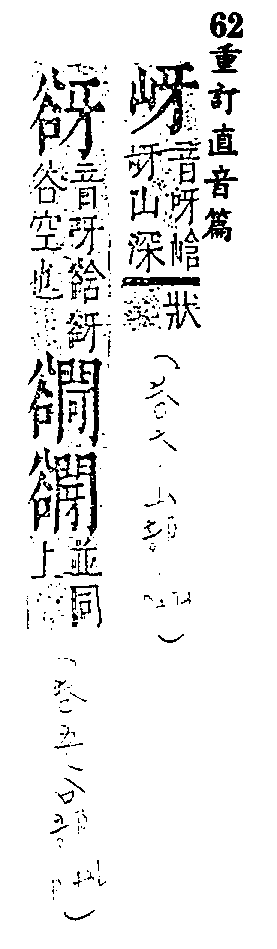 62重訂直音篇
岈音呀㟏岈山深狀(卷六·山部
谺音呀谽谺谷空也並同上(卷五·谷部